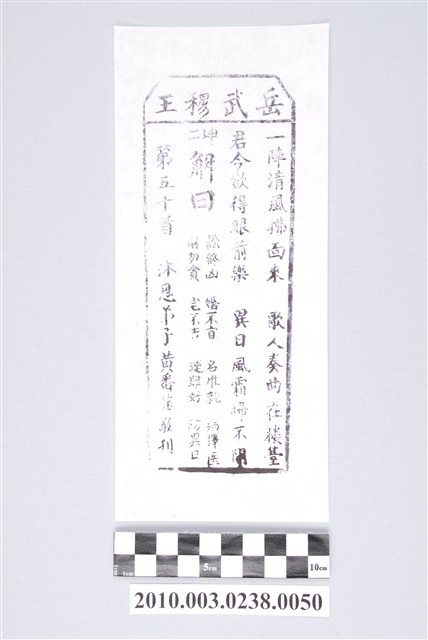 岳武穆王
一陣清風拂面來 歌人奏曲在樓臺
君今欲得眼前樂 異日風霜掃不開
坤二 解曰 訟終凶 婚不盲 名難就 病擇医
財勿貪 宅不吉 運雖好 防異日
第五十首 沐恩弟子黃番 敬刊
1cm 5cm 10cm
2010.003.0238.0050